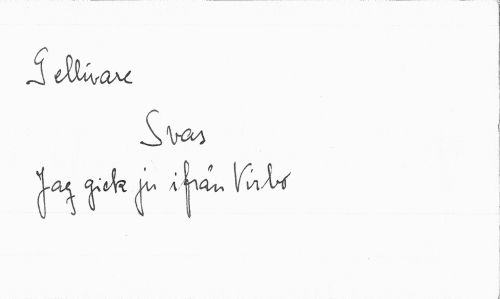 Gellivare
Svas
Jag gick ju ifrån Virbo